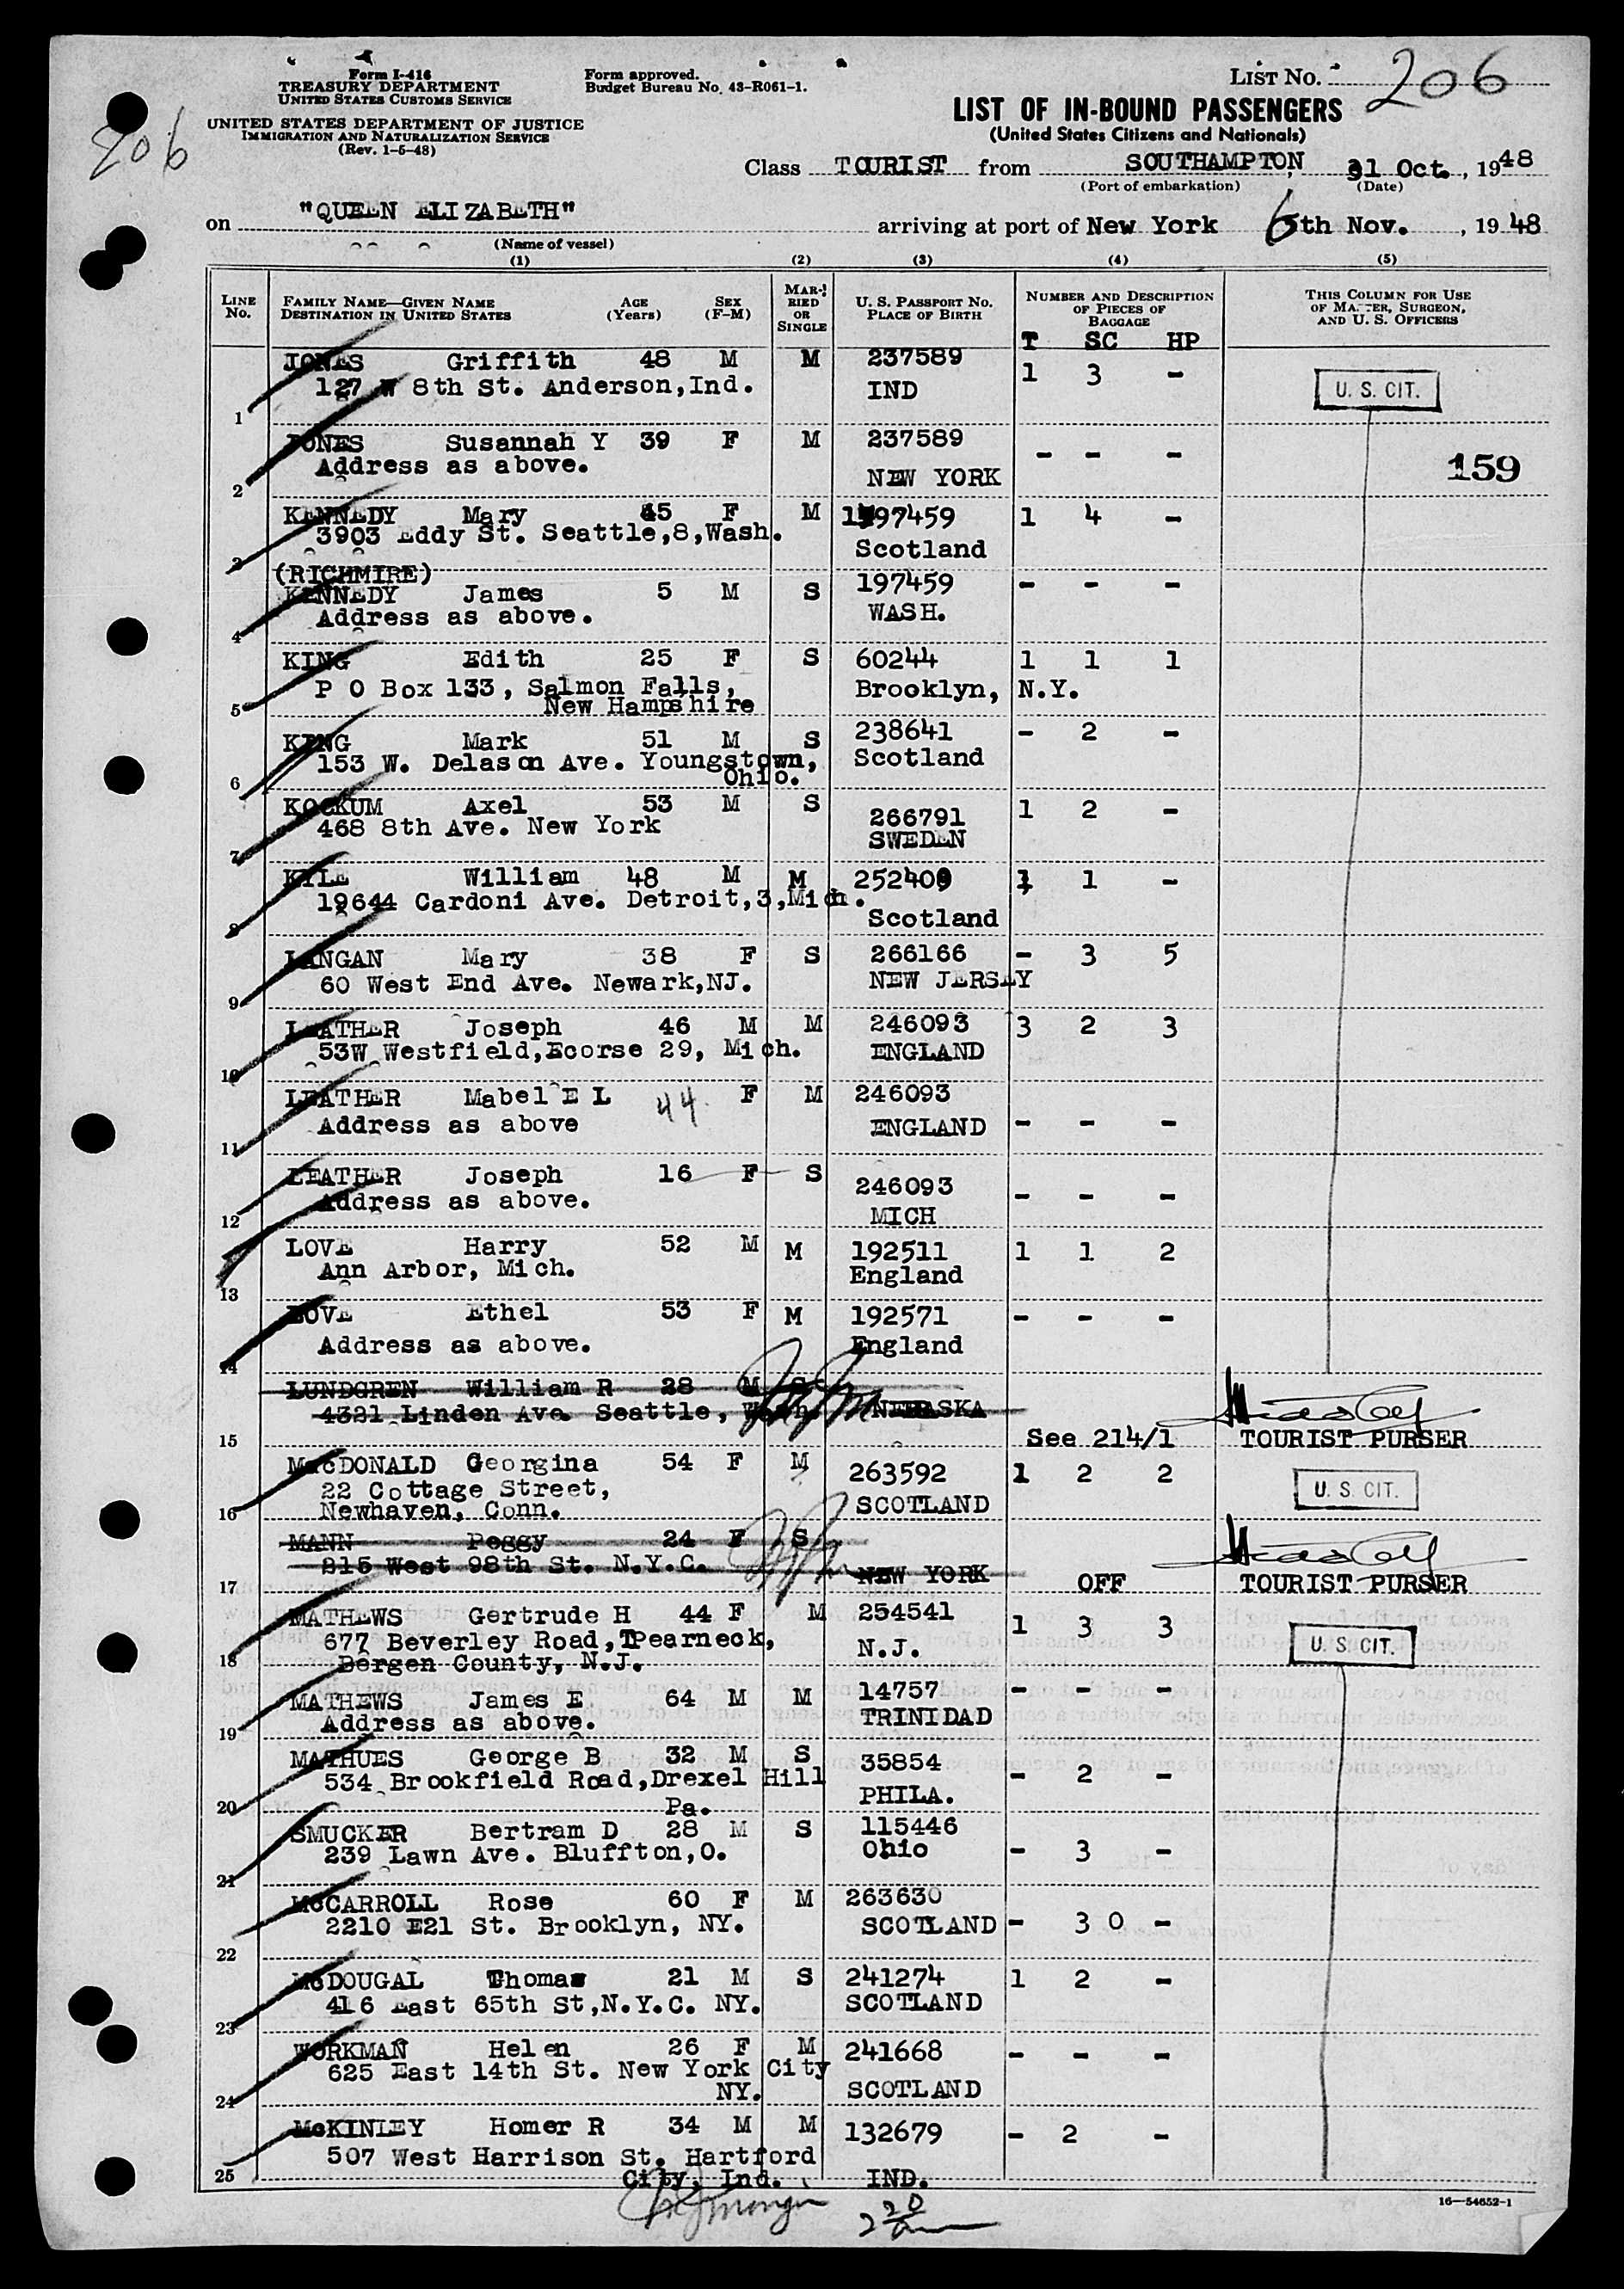 Form I-416
TREASURY DEPARTMENT
UNITED STATES CUSTOMS SERVICE
UNITED STATES DEPARTMENT OF JUSTICE
IMMIGRATION AND NATURALIZATION SERVICE
(Rev. 1-5-48)
Form approved.
Budget Bureau No. 43-R061-1.
LIST NO. 206
206
LIST OF IN-BOUND PASSENGERS
(United States Citizens and Nationals)
Class TOURIST from SOUTHAMPTON, 31 Oct., 1948
(Port of embarkation) (Date)
on "QUEEN ELIZABETH" arriving at port of New York 6th Nov. , 1948
(Name of vessel)
(1) (2) (3) (4) (5)
LINE No. FAMILY NAME—GIVEN NAME DESTINATION IN UNITED STATES AGE (Years) SEX (F-M) MARRIED OR SINGLE U. S. PASSPORT NO. PLACE OF BIRTH NUMBER AND DESCRIPTION OF PIECES OF BAGGAGE THIS COLUMN FOR USE OF MASTER, SURGEON, AND U. S. OFFICERS
T SC HP
JONES Griffith 48 M M 237589 1 3 -
127 W 8th St. Anderson,Ind. IND U. S. CIT.
1
JONES Susannah Y 39 F M 237589 - - -
Address as above. NEW YORK 159
2
KENNEDY Mary 45 F M 197459 1 4 -
3903 Eddy St. Seattle,8,Wash. Scotland
3
(RICHMIRE)
KENNEDY James 5 M S 197459 - - -
Address as above. WASH.
4
KING Edith 25 F S 60244 1 1 1
P O Box 133, Salmon Falls, Brooklyn, N.Y.
New Hampshire
5
KING Mark 51 M S 238641 - 2 -
153 W. Delason Ave. Youngstown, Scotland
Ohio.
6
KOCKUM Axel 53 M S 266791 1 2 -
468 8th Ave. New York SWEDEN
7
KYLE William 48 M M 252409 1 1 -
19644 Cardoni Ave. Detroit,3,Mich. Scotland
8
LANGAN Mary 38 F S 266166 - 3 5
60 West End Ave. Newark,NJ. NEW JERSEY
9
LEATHER Joseph 46 M M 246093 3 2 3
53W Westfield,Ecorse 29, Mich. ENGLAND
10
LEATHER Mabel E L 44 F M 246093
Address as above ENGLAND - - -
11
LEATHER Joseph 16 F S 246093 - - -
Address as above. MICH
12
LOVE Harry 52 M M 192511 1 1 2
Ann Arbor, Mich. England
13
LOVE Ethel 53 F M 192571 - - -
Address as above. England
14
LUNDGREN William R 28 M S
4321 Linden Ave Seattle, Wash. NEBRASKA
15 See 214/1 TOURIST PURSER
MacDONALD Georgina 54 F M 263592 1 2 2
22 Cottage Street, SCOTLAND U. S. CIT.
Newhaven, Conn.
16
MANN Peggy 24 F S
215 West 98th St. N.Y.C. NEW YORK
17 OFF TOURIST PURSER
MATHEWS Gertrude H 44 F M 254541 1 3 3
677 Beverley Road,Tpearneck, N.J. U. S. CIT.
Bergen County, N.J.
18
MATHEWS James E 64 M M 14757 - - -
Address as above. TRINIDAD
19
MATHUES George B 32 M S 35854 - 2 -
534 Brookfield Road,Drexel Hill PHILA.
Pa.
20
SMUCKER Bertram D 28 M S 115446
239 Lawn Ave. Bluffton,O. Ohio - 3 -
21
McCARROLL Rose 60 F M 263630
2210 E21 St. Brooklyn, NY. SCOTLAND - 3 0 -
22
McDOUGAL Thomas 21 M S 241274 1 2 -
416 East 65th St,N.Y.C. NY. SCOTLAND
23
WORKMAN Helen 26 F M 241668 - - -
625 East 14th St. New York City SCOTLAND
NY.
24
McKINLEY Homer R 34 M M 132679 - 2 -
507 West Harrison St. Hartford
City, Ind. IND.
25
16—54652-1